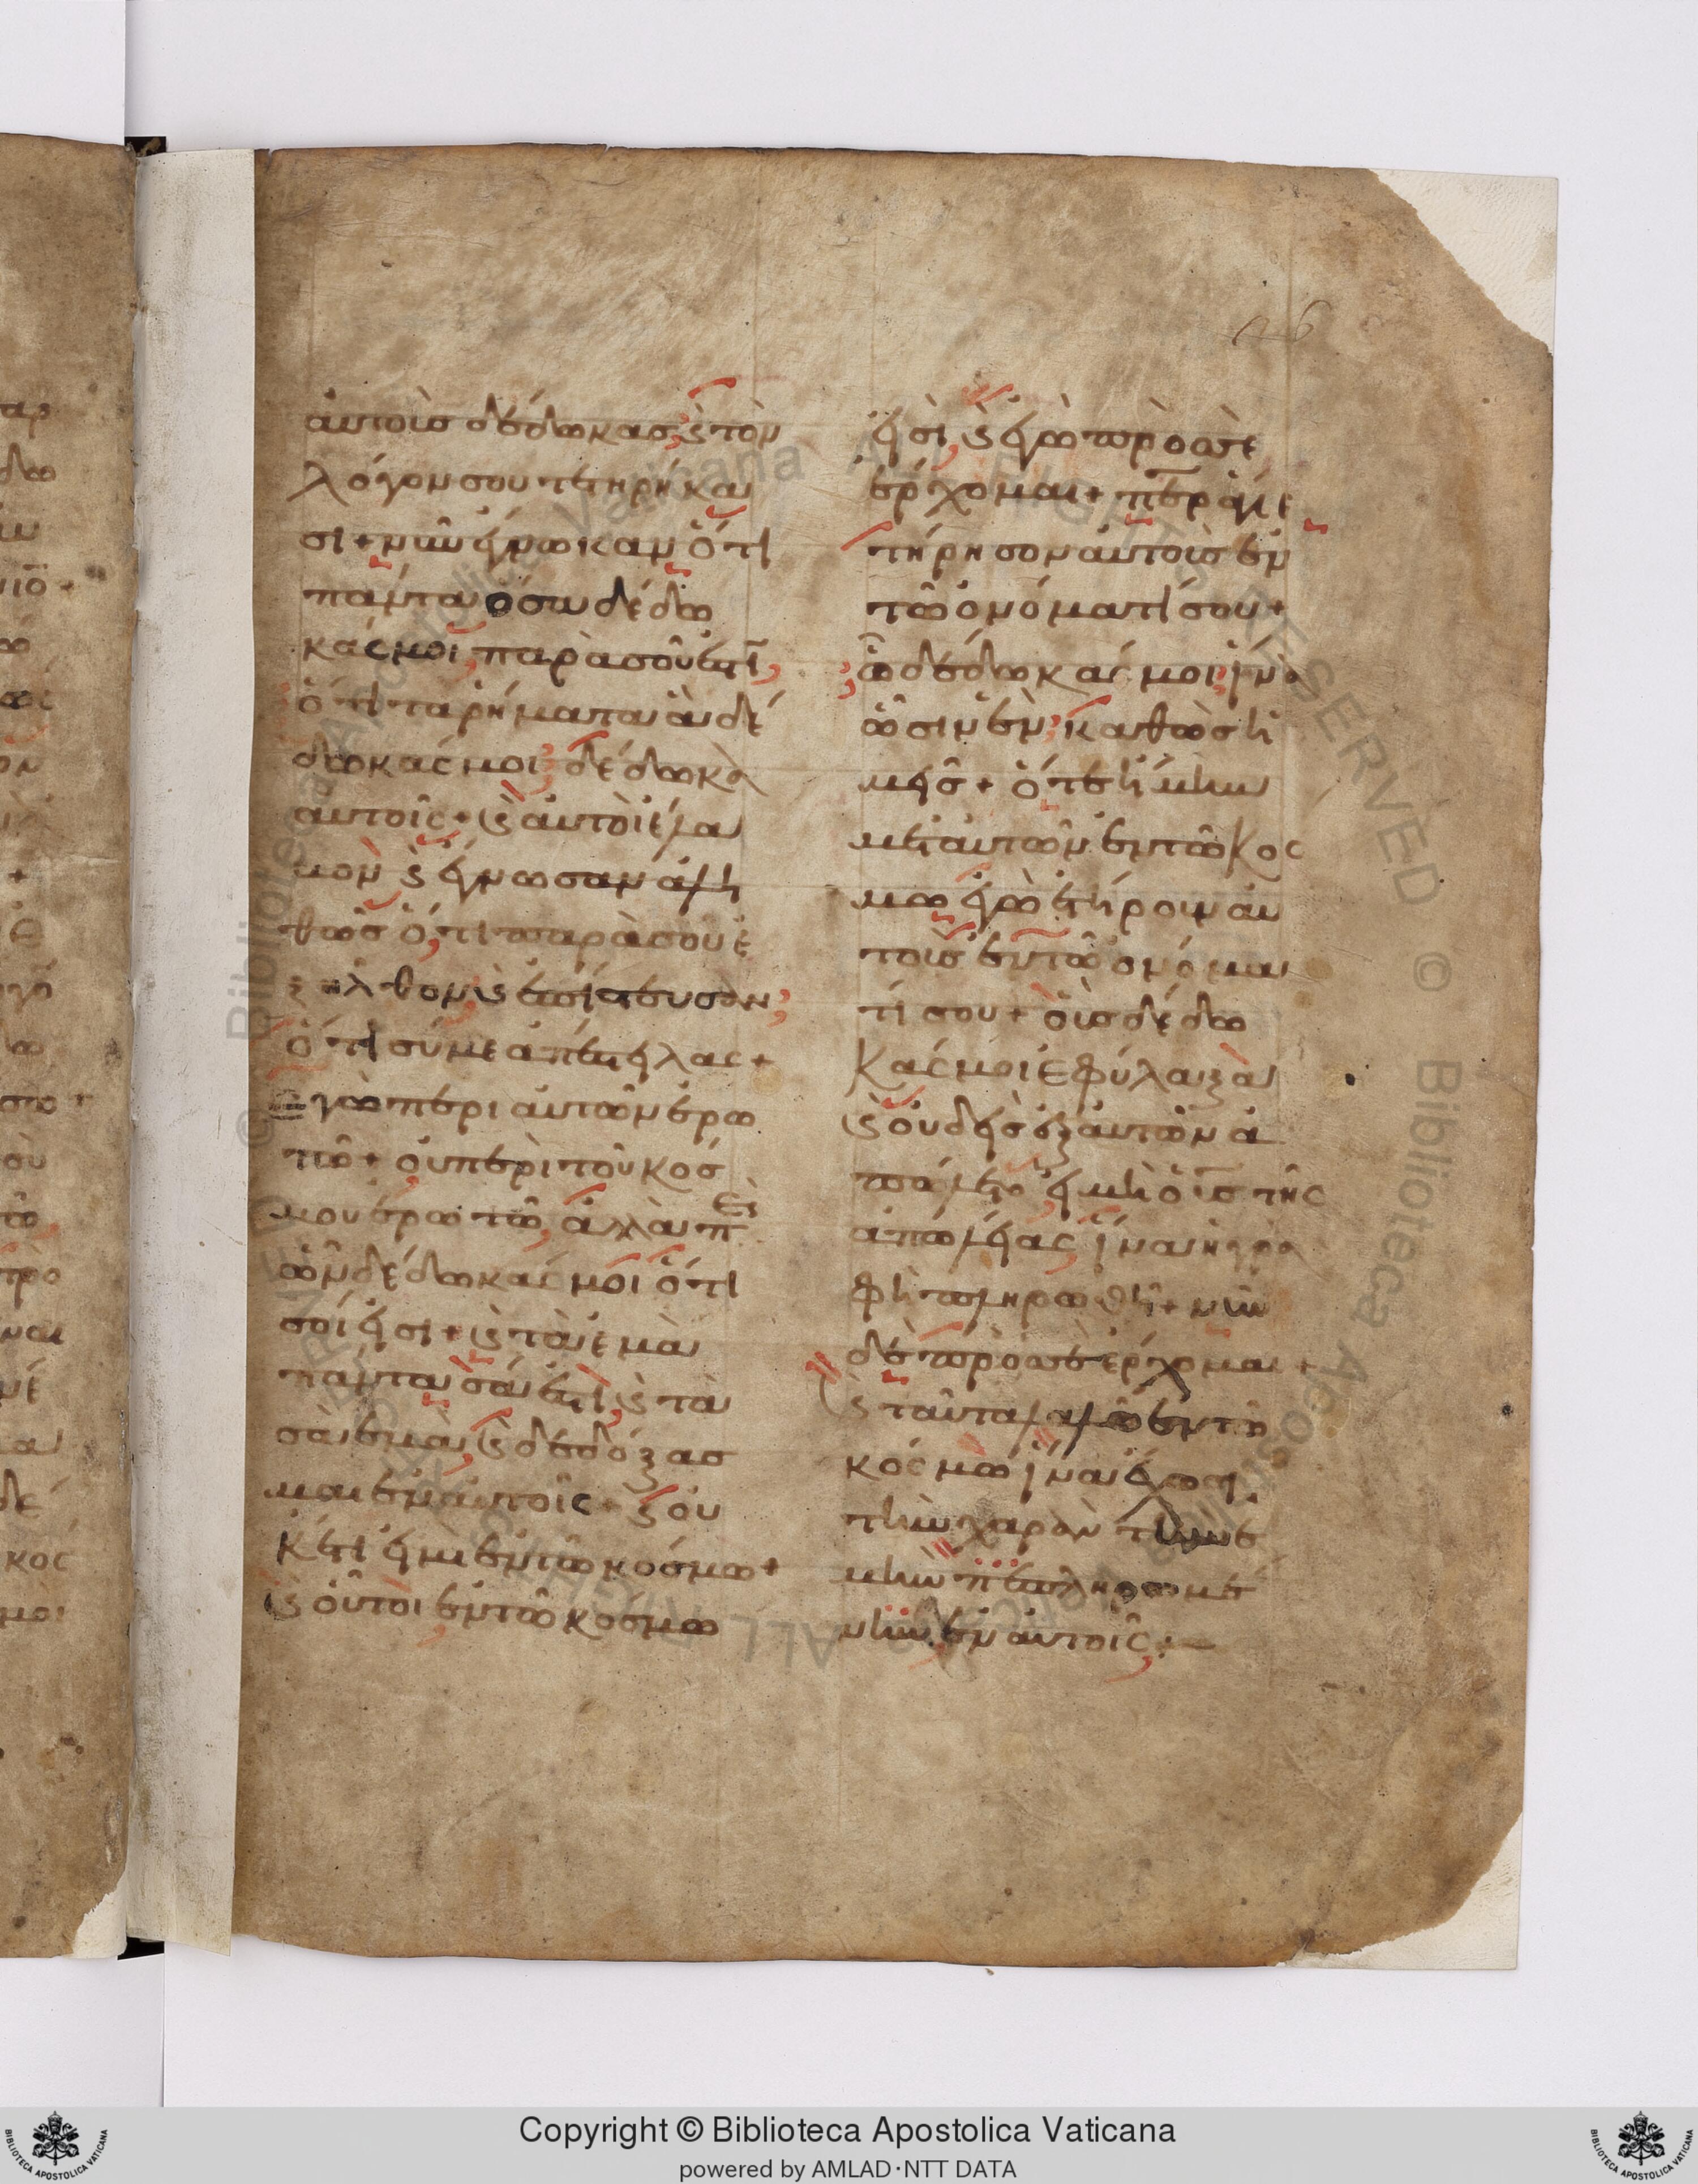 126
ἀυτοῖσ δέδωκασ, ϗ τὸν
λόγον σου τετηρήκα
σι + νῦν ἔγνωκαν ὅτι
πάντα ὅσα δέδω
κάς μοι, παρὰ σοῦ ἐστῒ,
ὅτι τα ρήματα ἃ δέ
δωκάς μοι, δέδωκα
αυτοῖς + ϗ ἀυτοὶ ἔλα
βον ϗ ἔγνωσαν ἀλη
θῶσ ὅτι παρὰ σου ἐ
ξηλθον, ϗ ἐπίστευσαν,
ὅτι σύ με ἀπέστειλας +
Εγὼ περι ἀυτῶν ἐρω
τῶ + ὀυ περὶ τοῦ κοσ
μου ἐρωτῶ, ἀλλὰ πὲρι
ὧν δέδωκάς μοι ὅτι
σοί εἰσι + ϗ τὰ ἐμὰ
πάντα σά ἐστὶ, ϗ τὰ
σὰ ἐμὰ, ϗ δεδόξασ
μαι ἐν ἀυτοῖς + ϗ ὀυ
κέτι εἰμὶ ἐν τῶ κόσμω +
ϗ ὅυτοι ἐν τῶ κόσμω
εἰσὶ, ϗ ἐγὼ πρὸσ σὲ
ἔρχομαι + περ ἅγιε
τήρησον ἀυτοὺσ ἐν
τῶ ὀνόματί σου +
ᾧ δέδωκάς μοι, ἵνα
ὦσιν ἓν, καθὼσ ἡ
μεῖς + ὅτε ἤμην
μετ ἀυτῶν ἐν τῶ κοσ
μω ἐγὼ ἐτήρουν ἀυ
τοὺσ ἐν τῶ ὀνόμα
τί σου + ὁὺσ δέδω
κάς μοι ἐφύλαξα
ϗ ὀυδεὶσ ἐξ ἀυτῶν ἀ
πώλετο, εἰ μὴ ὁ ϋσ τῆς
ἀπωλείας, ἵνα ἡ γρα
φὴ πληρωθῆ + νῦν
δὲ πρὸσ σὲ ἔρχομαι +
ϗ ταῦτα λαλῶ ἐν τῶ
κόσμω ἵνα ἔχωσι
τὴν χαρὰν τὴν ἐ
μὴν πεπληρωμέ
νην ἐν ἀυτοῖς +
Copyright © Biblioteca Apostolica Vaticana
powered by AMLAD·NTT DATA